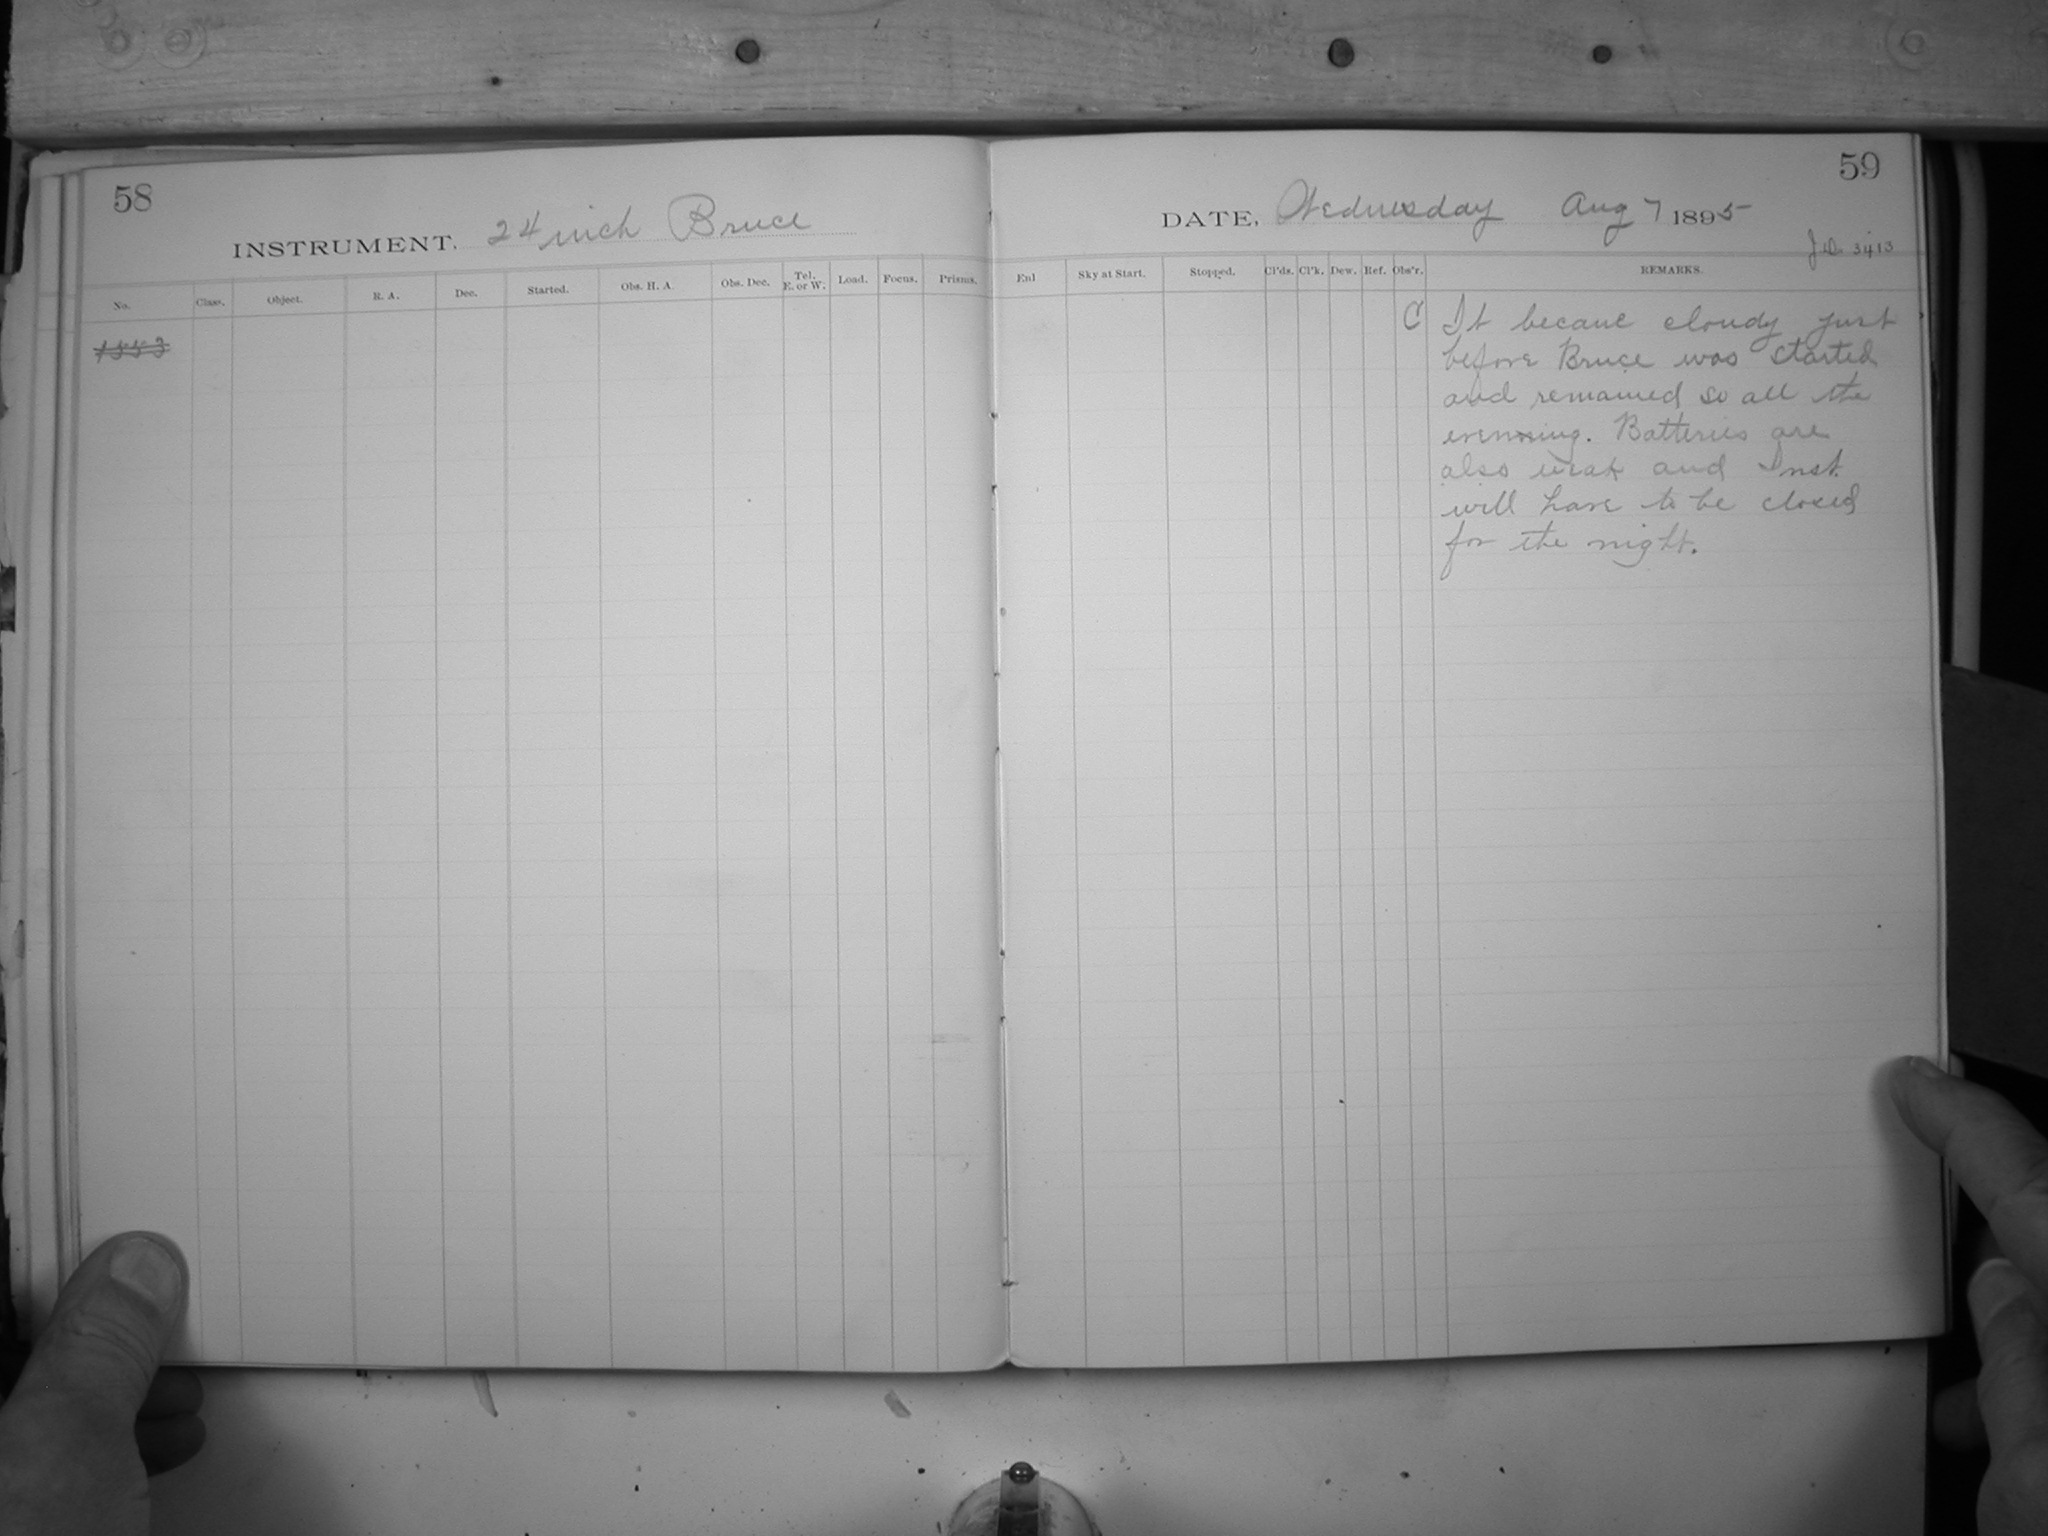 58
INSTRUMENT. 24 inch Bruce
No. Class. Object. R. A. Dec. Started. Obs. H. A. Obs. Dec. Tel. E. or W. Load. Focus. Prisms.
1553
59
DATE, Wednesday Aug 7 1895
J.D. 3413
Enl Sky at Start. Stopped. Cl'ds. Cl'k. Dew. Ref. Obs'r. REMARKS.
C It became cloudy just
before Bruce was started
and remained so all the
evenning. Batteries are
also weak and Inst.
will have to be closed
for the night.